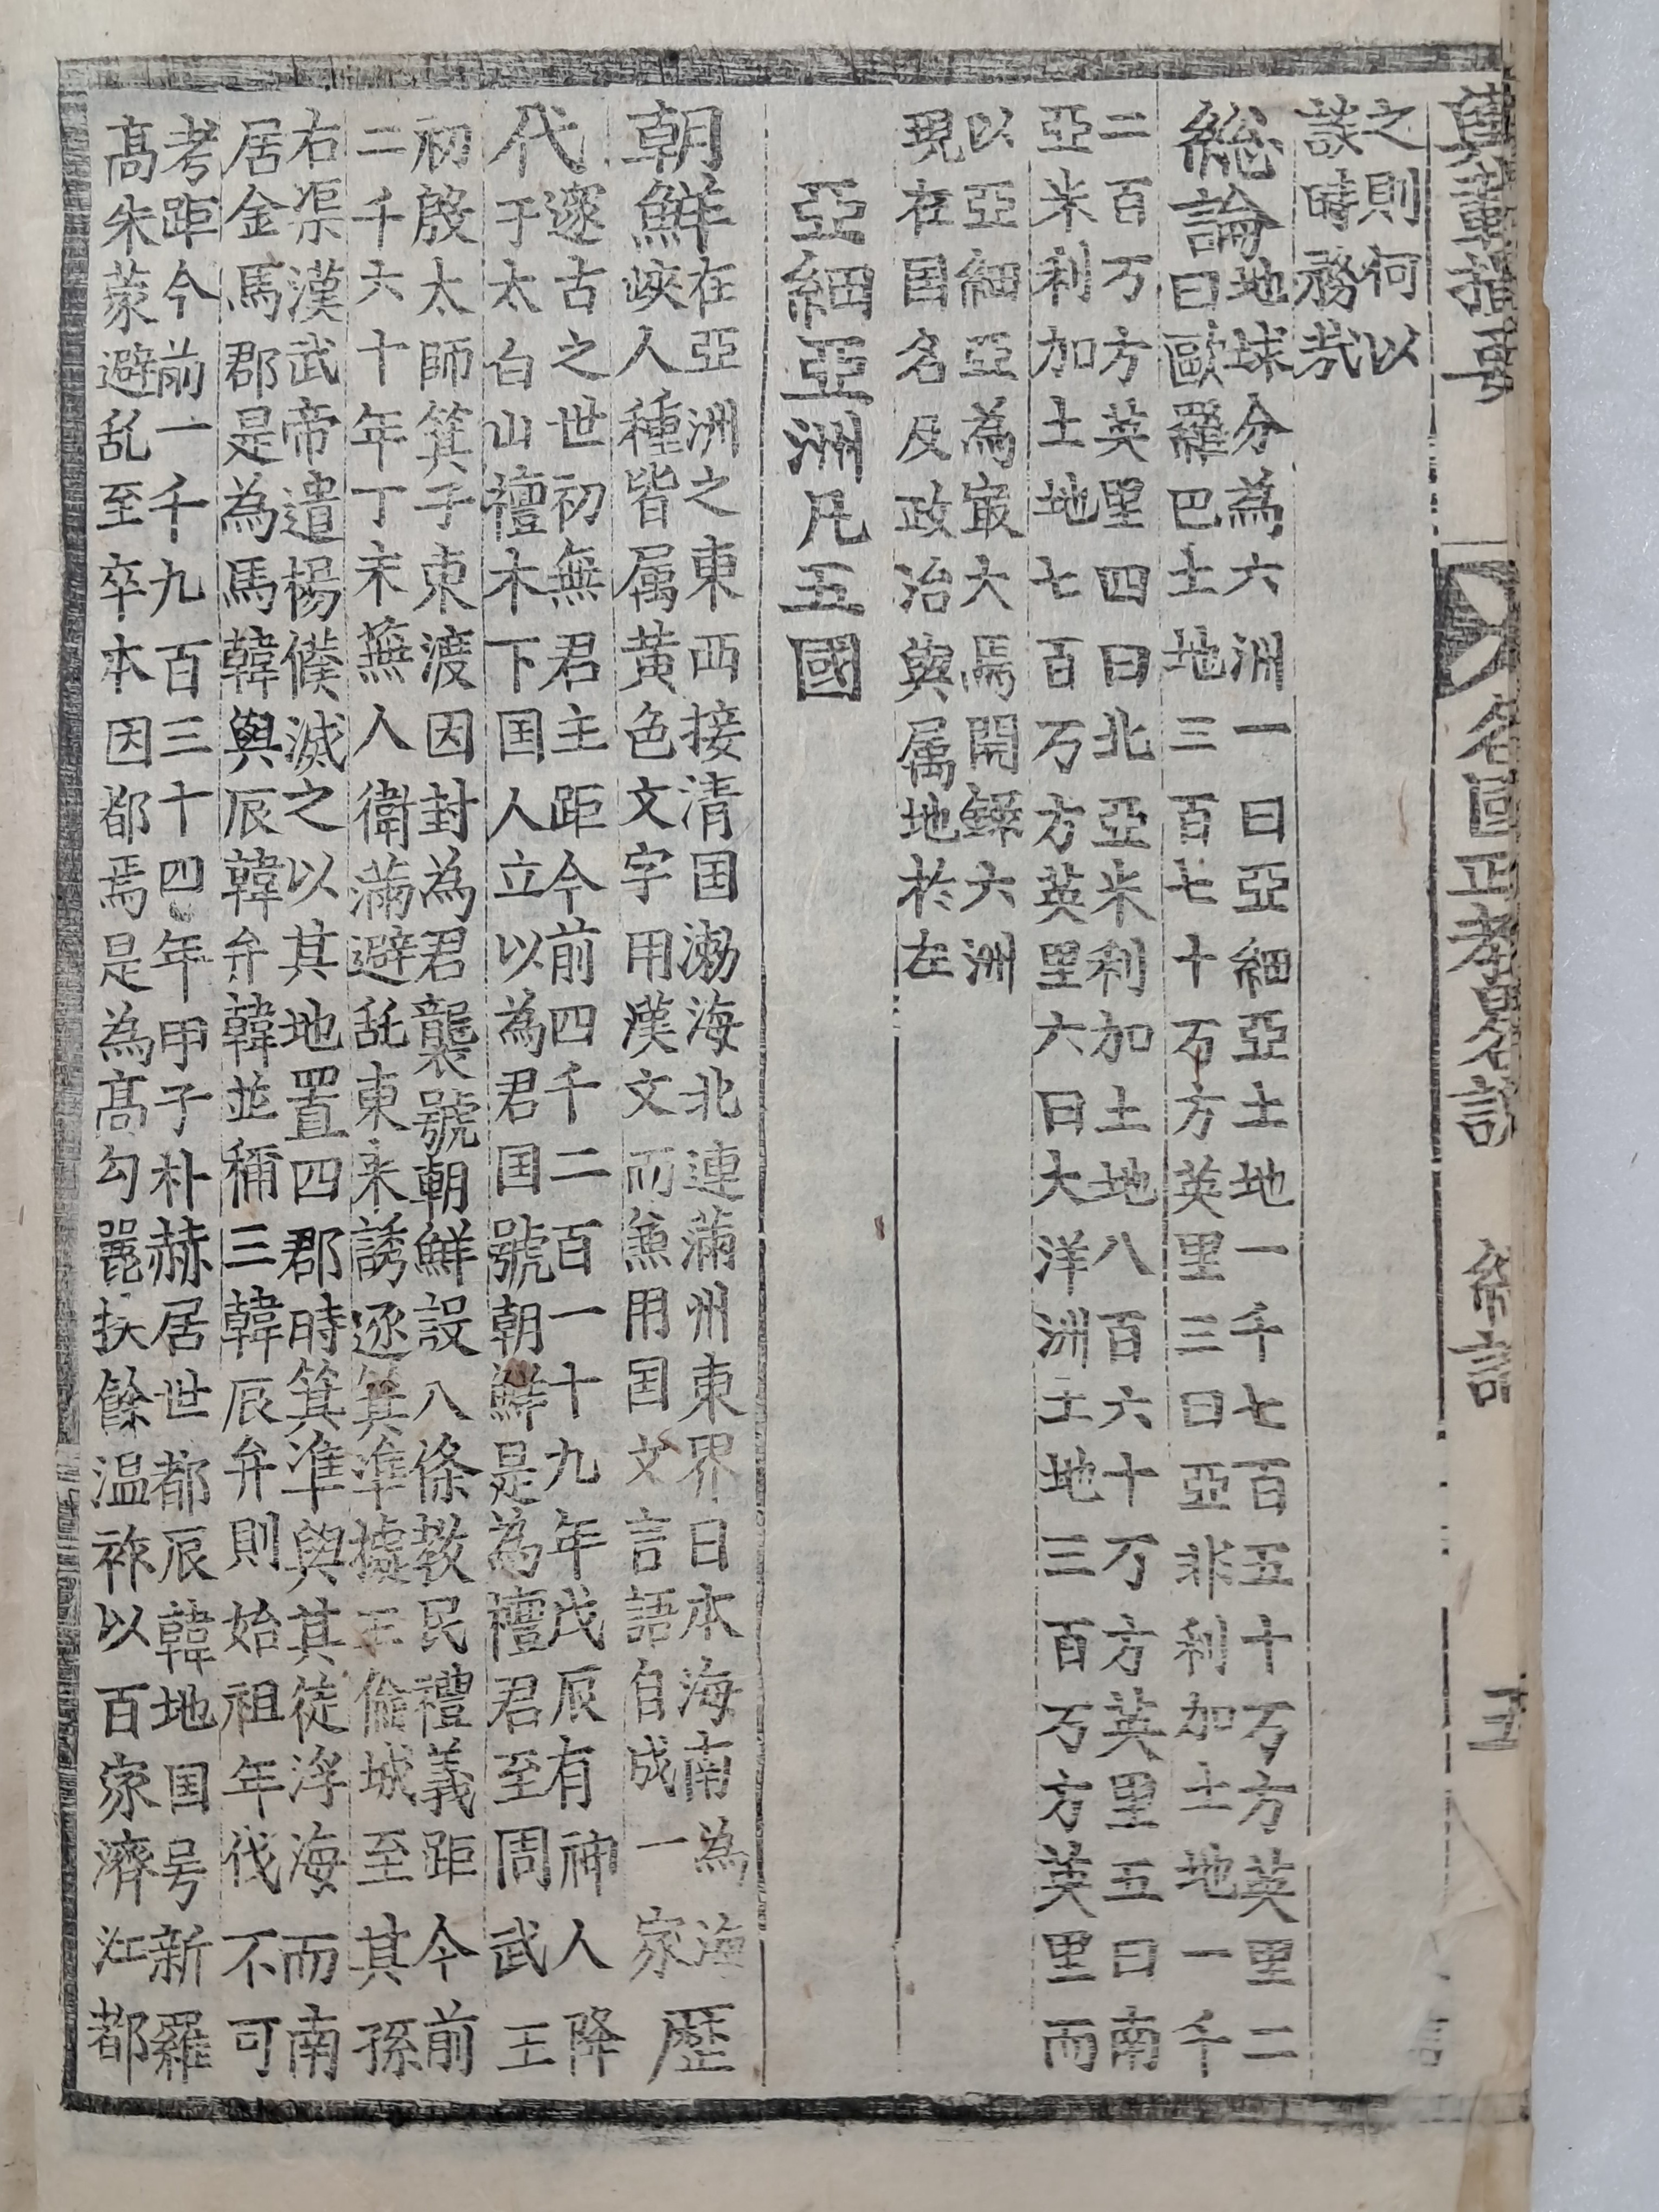 各國
五
之則何以
談時務哉
総論地球分為六洲一曰亞細亞土地一千七百五十万方英里二
曰歐羅巴土地三百七十万方英里三曰亞非利加土地一千
二百万方英里四曰北亞米利加土地八百六十万方英里五曰南
亞米利加土地七百万方英里六曰大洋洲土地三百万方英里而
以亞細亞為㝡大焉開錄六洲
現在国名及政治與属地於左
亞細亞洲凡五國
朝鮮在亞洲之東西接清国渤海北連滿州東界日本海南為海
峽人種皆属黃色文字用漢文而兼用国文言語自成一家歷
代邃古之世初無君主距今前四千二百一十九年戊辰有神人降
于太白山檀木下国人立以為君国號朝鮮是為檀君至周武王
初殷太師箕子東渡因封為君襲號朝鮮設八條教民禮義距今前
二千六十年丁未燕人衛滿避乱東来誘逐箕準據王儉城至其孫
右渠漢武帝遣楊僕滅之以其地置四郡時箕準與其徒浮海而南
居金馬郡是為馬韓與辰韓弁韓並稱三韓辰弁則始祖年代不可
考距今前一千九百三十四年甲子朴赫居世都辰韓地国号新羅
高朱蒙避乱至卒本因都焉是為高勾麗扶餘温祚以百家濟江都